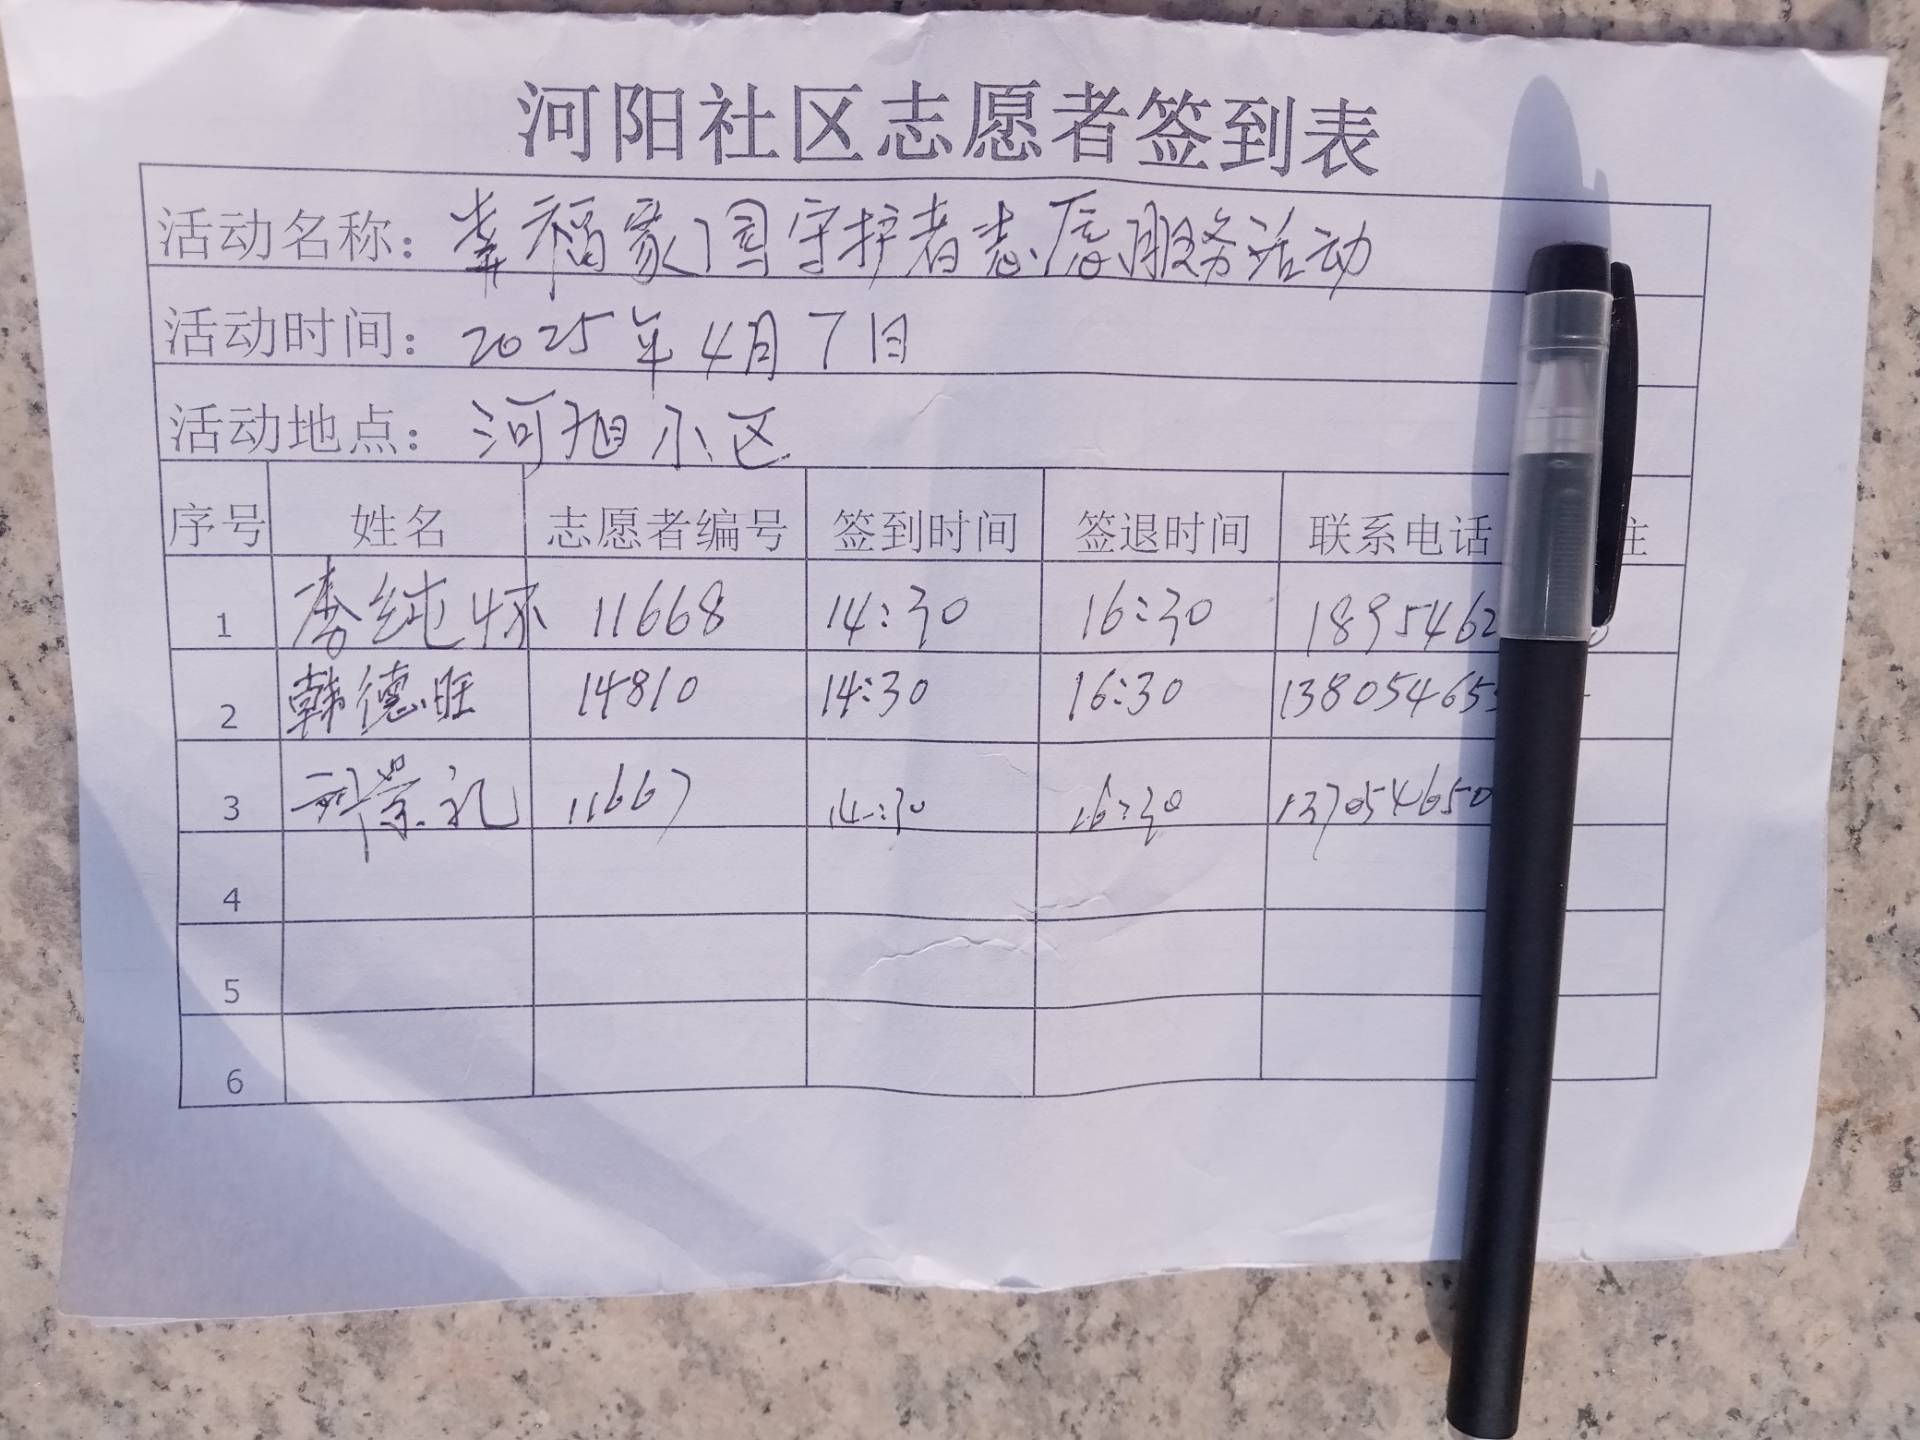 河阳社区志愿者签到表
活动名称：幸福家园守护者志愿服务活动
活动时间：2025年4月7日
活动地点：河旭小区
序号 姓名 志愿者编号 签到时间 签退时间 联系电话 注
1 李纯怀 11668 14:30 16:30 1895462
2 韩德旺 14810 14:30 16:30 138054655
3 崇礼 11667 14:30 16:30 137054650
4
5
6